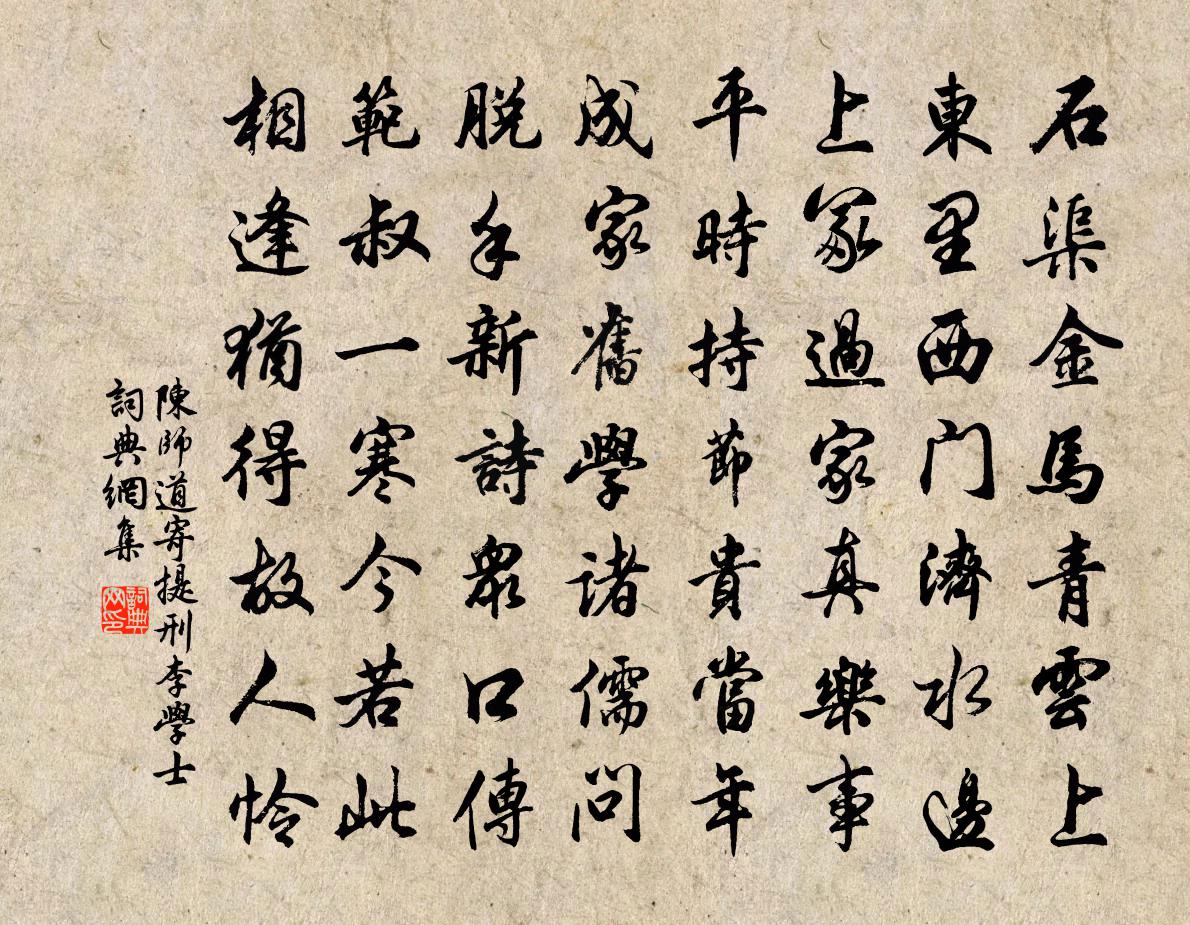 石渠金馬青雲上
東里西门濟水邊
上冢過家真樂事
平時持節貴當年
成家舊學諸儒問
脱手新詩衆口傳
範叔一寒今若此
相逢猶得故人怜
陳師道寄提刑李學士
詞典網集
詞典网印